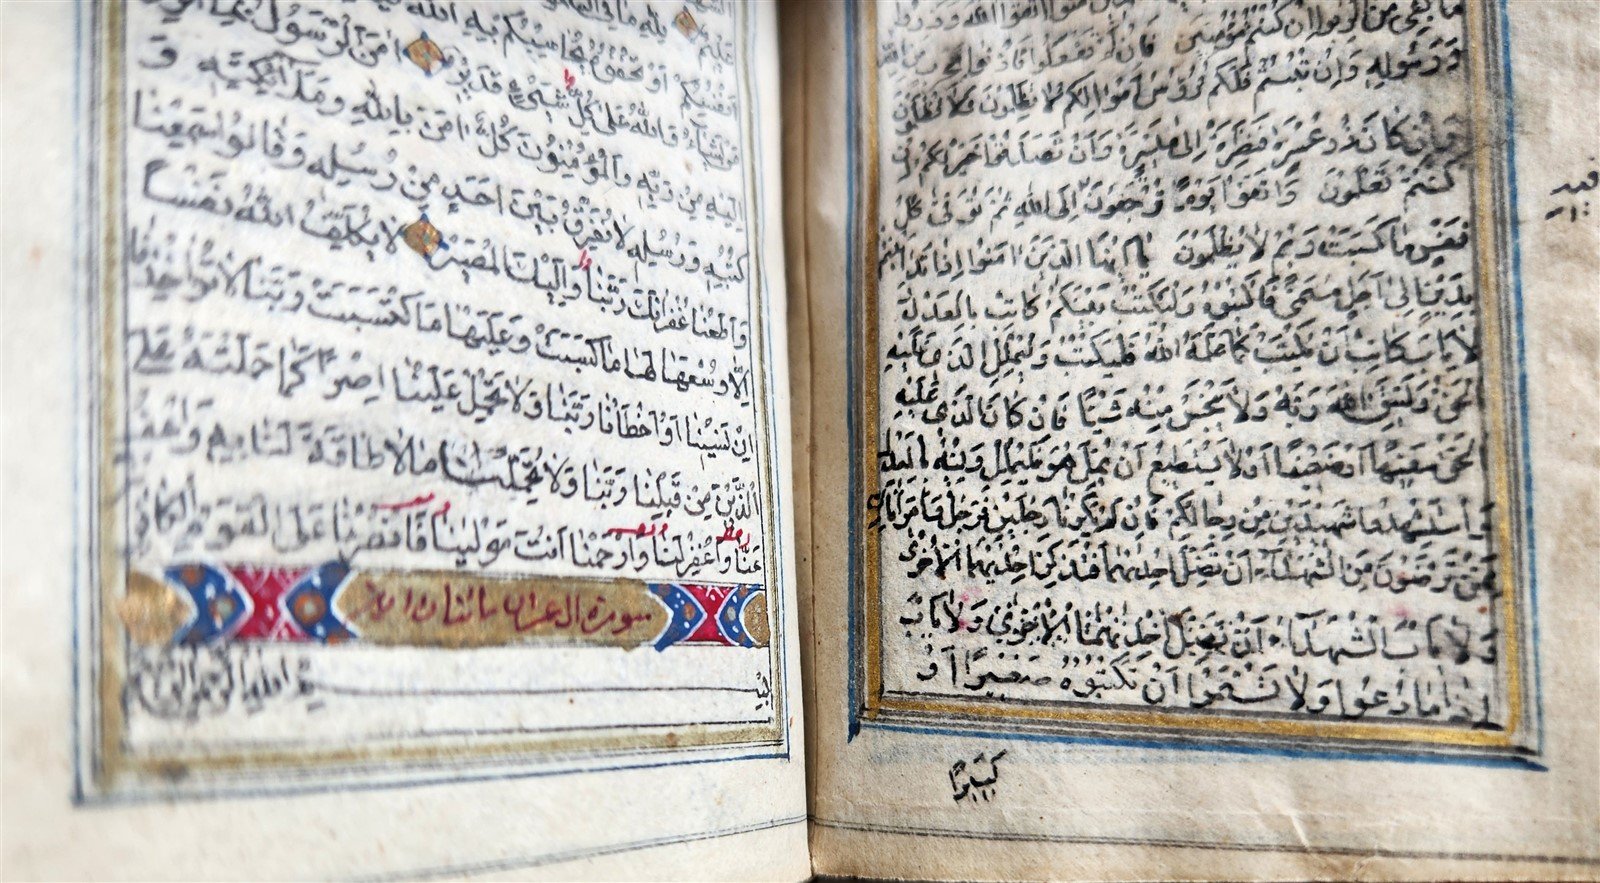 امنوا اتقوا الله وذروا
ما بقى من الربوا ان كنتم مؤمنين فان لم تفعلوا فاذنوا بحرب من
ورسوله وان تبتم فلكم رؤس اموالكم لا تظلمون ولا تظلمون
وان كان ذو عسرة فنظرة الى ميسرة وان تصدقوا خير لكم ان
كنتم تعلمون واتقوا يوما ترجعون الى الله ثم توفى كل
فيه
نفس ما كسبت وهم لا يظلمون يا ايها الذين امنوا اذا تداينتم
بدين الى اجل مسمى فاكتبوه وليكتب بينكم كاتب بالعدل و
لا ياب كاتب ان يكتب كما علمه الله فليكتب وليملل الذى عليه
الحق وليتق الله ربه ولا يبخس منه شيئا فان كان الذى عليه
الحق سفيها او ضعيفا او لا يستطيع ان يمل هو فليملل وليه بالعدل
واستشهدوا شهيدين من رجالكم فان لم يكونا رجلين فرجل وامراتان
ممن ترضون من الشهداء ان تضل احديهما فتذكر احديهما الاخرى
ولا ياب الشهداء ان تضل احديهما الاخرى ولا ياب
اذا ما دعوا ولا تسئموا ان تكتبوه صغيرا او
كبيرا
عليم لله ما فى السموات
انفسكم او تخفوه يحاسبكم به الله
من يشاء والله على كل شىء قدير امن الرسول بما انزل
اليه من ربه والمؤمنون كل امن بالله وملائكته و
كتبه ورسله لا نفرق بين احد من رسله وقالوا سمعنا
واطعنا غفرانك ربنا واليك المصير لا يكلف الله نفسا
الا وسعها لها ما كسبت وعليها ما اكتسبت ربنا لا تؤاخذنا
ان نسينا او اخطانا ربنا ولا تحمل علينا اصرا كما حملته على
الذين من قبلنا ربنا ولا تحملنا ما لا طاقة لنا به واعف
عنا واغفر لنا وارحمنا انت مولينا فانصرنا على القوم الكافرين
سورة ال عمران مائتان اية
بسم الله الرحمن الرحيم